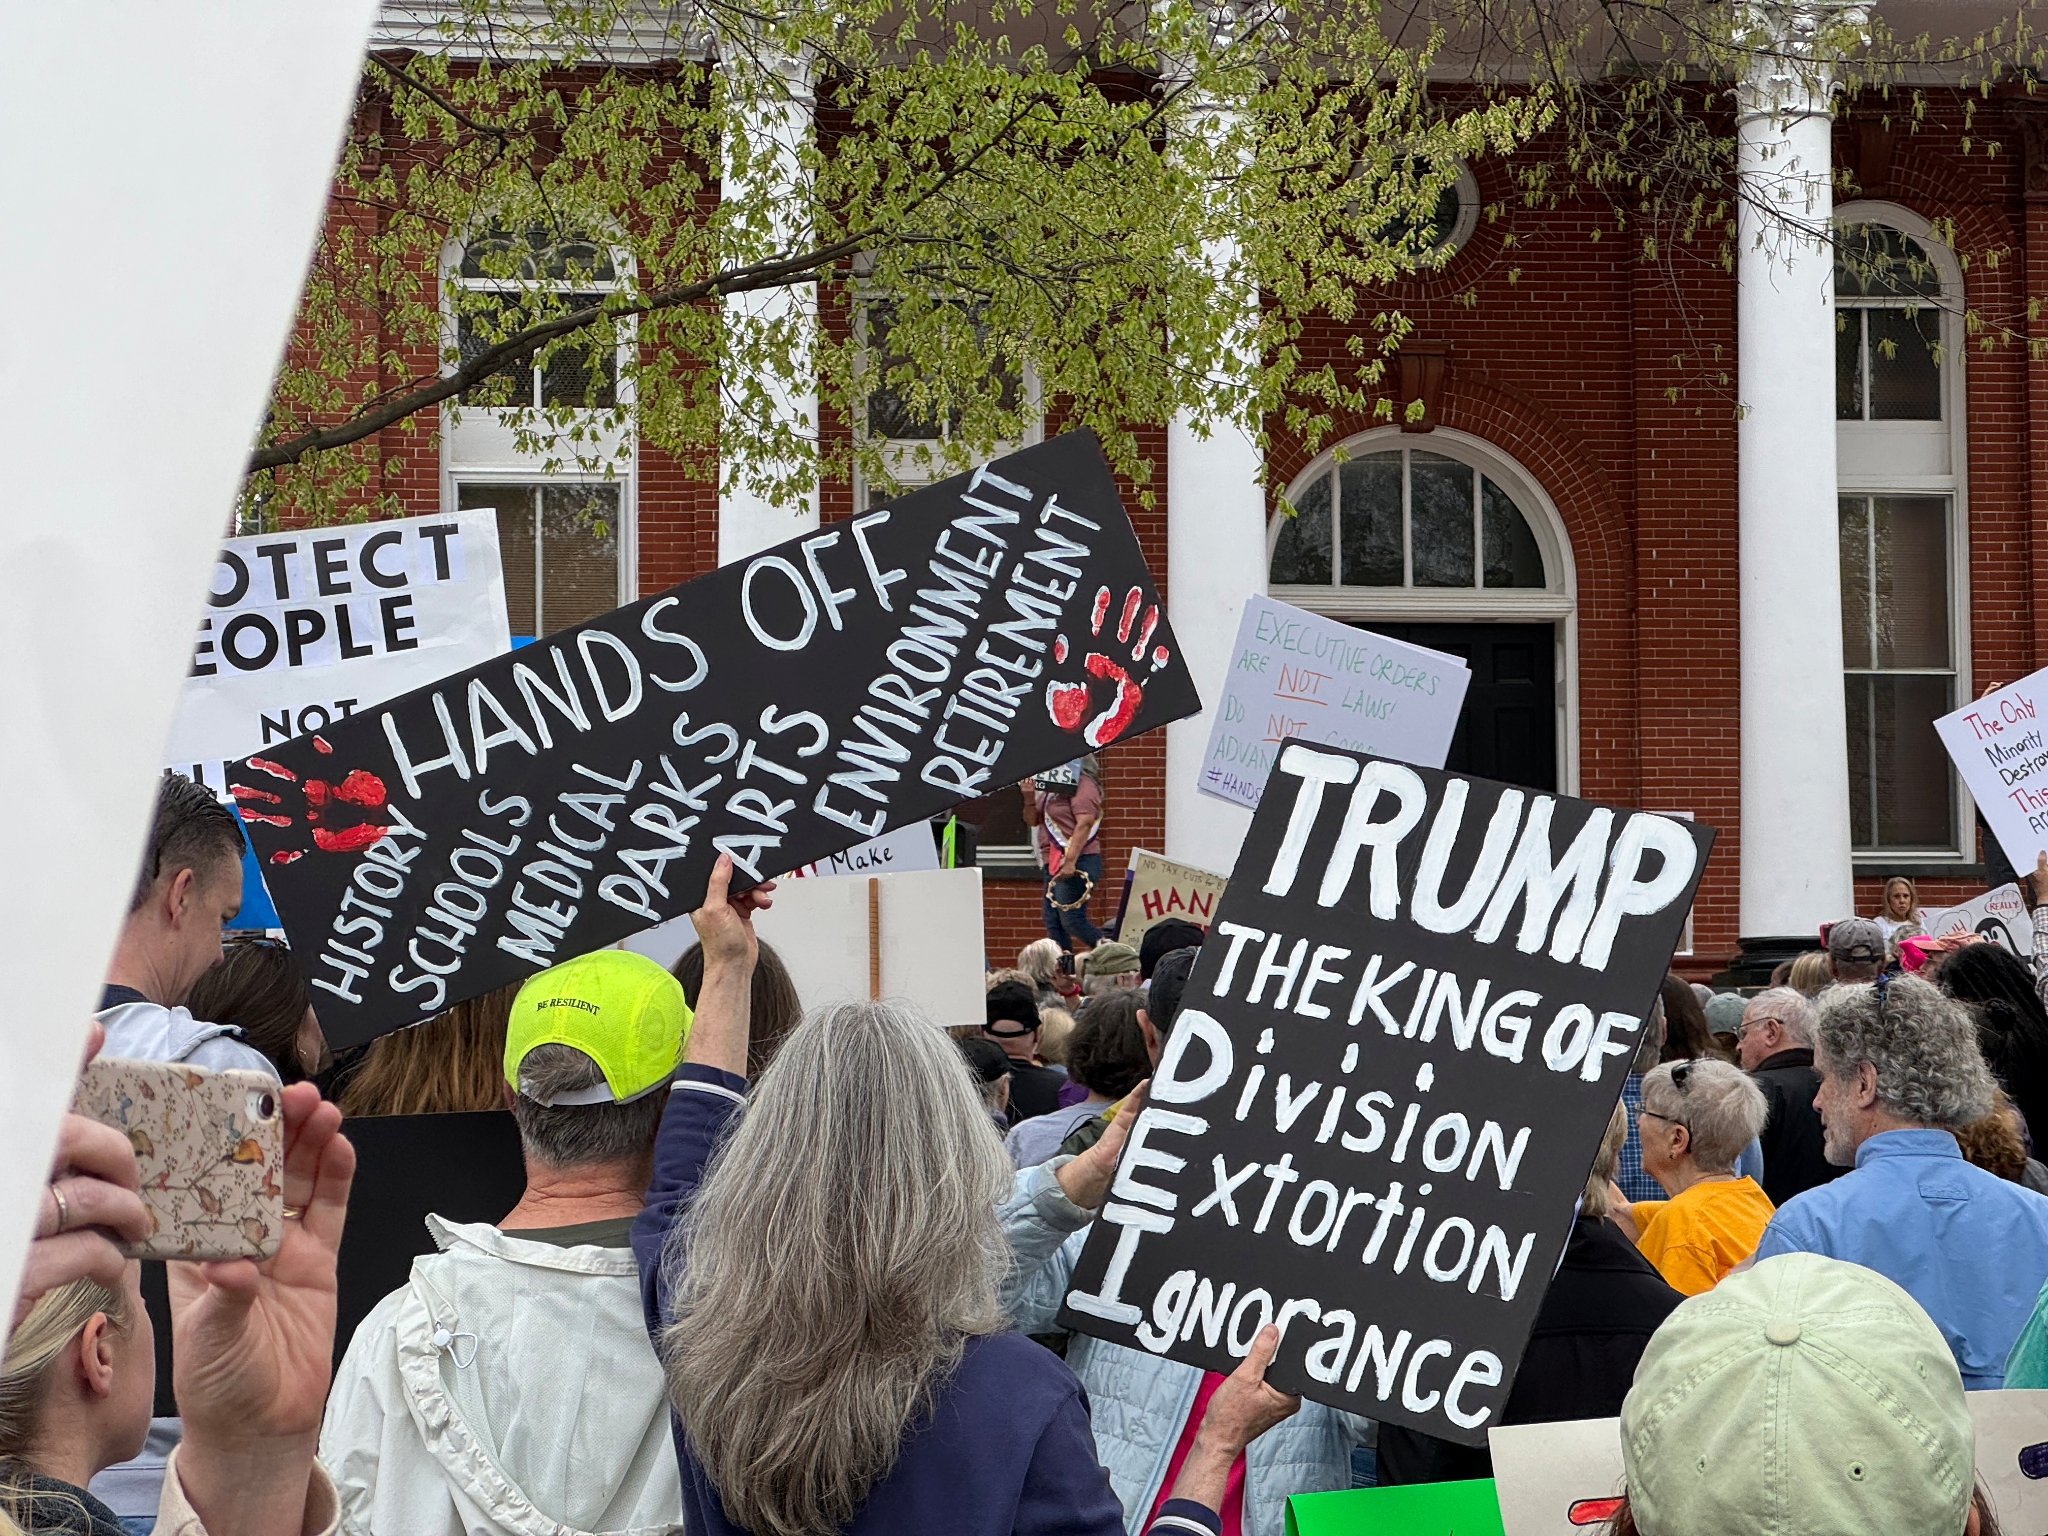 OTECT
EOPLE
NOT
HANDS OFF
HISTORY
SCHOOLS
MEDICAL
PARKS
ARTS
ENVIRONMENT
RETIREMENT
BE RESILIENT
Make
EXECUTIVE ORDERS
ARE NOT LAWS!
DO NOT
ADVAN
#HANDS
NO TAX CUTS
HAN
TRUMP
THE KING OF
Division
Extortion
Ignorance
The Only
Minority
Destro
This
REALLY